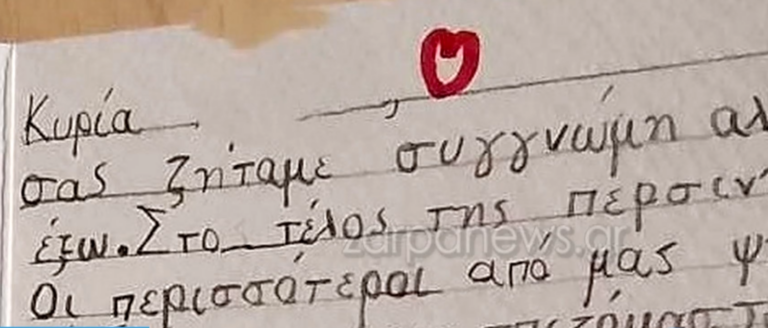 Κυρία ,
σας ζητάμε συγγνώμη
έξω. Στο τέλος της
Οι περισσότεροι από μας
zarpanews.gr